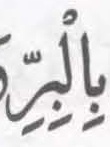 بِالْبِرِّ